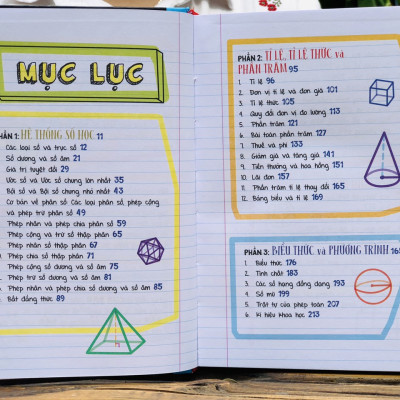 MỤC LỤC
PHẦN 1: HỆ THỐNG SỐ HỌC 11
Các loại số và trục số 12
Số dương và số âm 21
Giá trị tuyệt đối 29
Ước số và Ước số chung lớn nhất 35
Bội số và Bội số chung nhỏ nhất 43
Cơ bản về phân số: Các loại phân số, phép cộng
và phép trừ phân số 49
Phép nhân và phép chia phân số 59
Phép cộng và trừ số thập phân 65
Phép nhân số thập phân 67
Phép chia số thập phân 71
Phép cộng số dương và số âm 75
Phép trừ số dương và số âm 81
Phép nhân và phép chia số dương và số âm 85
Bất đẳng thức 89
PHẦN 2: TỈ LỆ, TỈ LỆ THỨC và
PHẦN TRĂM 95
1. Tỉ lệ 96
2. Đơn vị tỉ lệ và đơn giá 101
3. Tỉ lệ thức 105
4. Quy đổi đơn vị đo lường 113
5. Phần trăm 121
6. Bài toán phần trăm 127
7. Thuế và phí 133
8. Giảm giá và tăng giá 141
9. Tiền thưởng và hoa hồng 151
10. Lãi đơn 157
11. Phần trăm tỉ lệ thay đổi 165
12. Bảng biểu và tỉ lệ 169
PHẦN 3: BIỂU THỨC và PHƯƠNG TRÌNH
1. Biểu thức 176
2. Tính chất 183
3. Các số hạng đồng dạng 193
4. Số mũ 199
5. Trật tự của phép toán 207
6. Kí hiệu khoa học 213